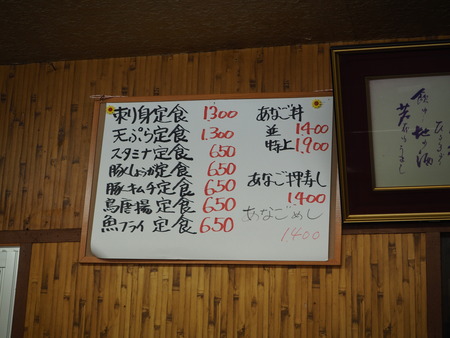 刺り身定食 1300
天ぷら定食 1.300
スタミナ定食 650
豚しょうが定食 650
豚キムチ定食 650
鳥唐揚定食 650
魚フライ定食 650
あなご丼
並 1400
特上 1.900
あなご押寿し
1400
あなごめし
1400